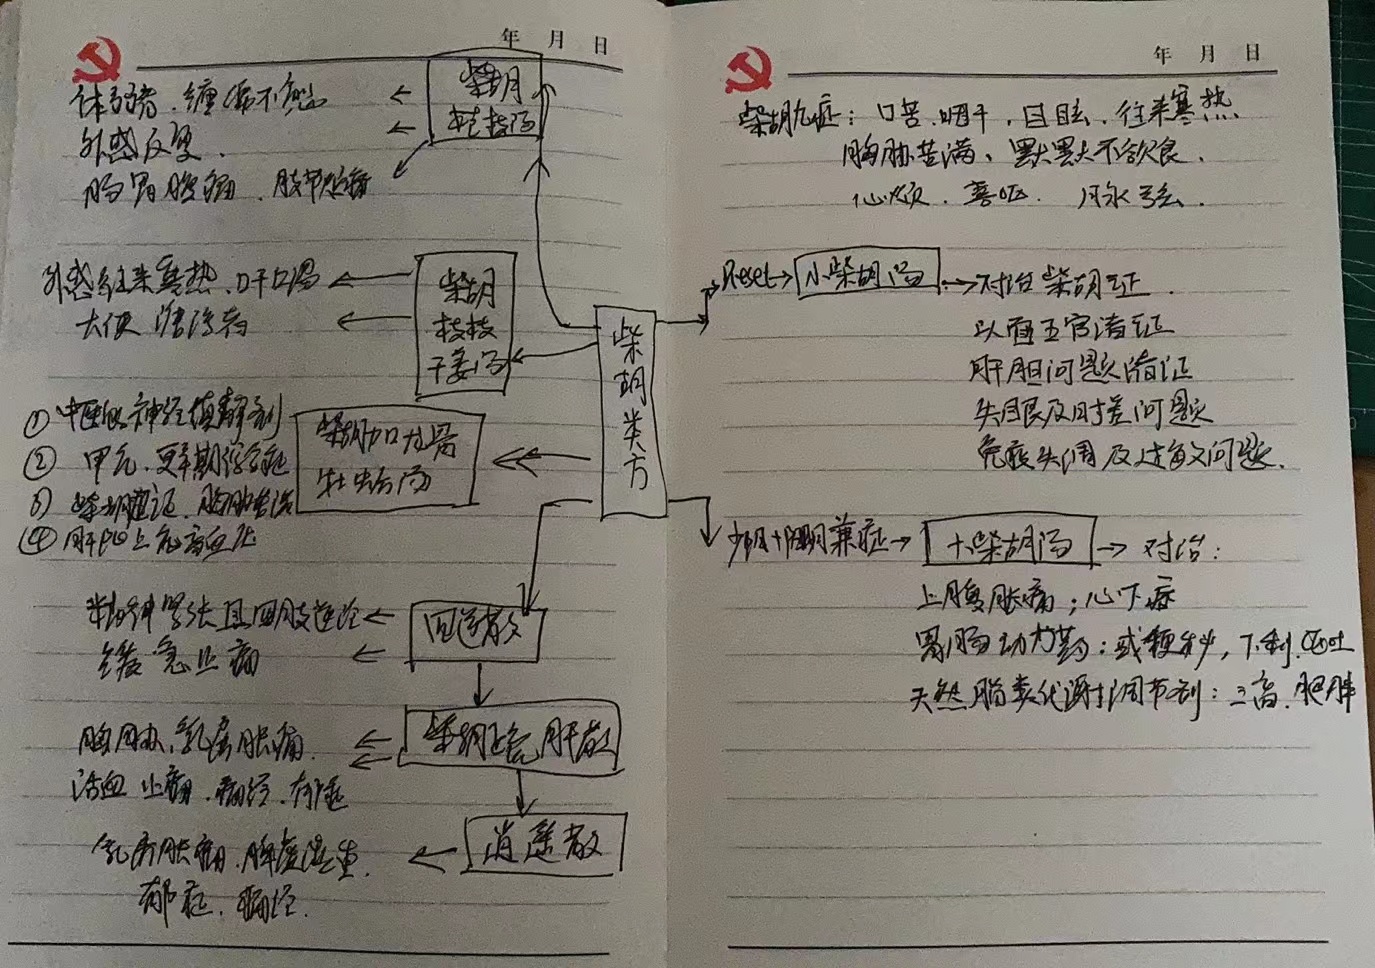 年 月 日
柴胡
桂枝汤
体弱者、缠绵不愈
外感反复、
肠胃腹痛、肢节烦痛
柴胡
桂枝
干姜汤
外感往来寒热、口干口渴
大便溏泻者
柴胡加龙骨
牡蛎汤
① 中医的神经镇静剂
② 甲亢、更年期综合征
③ 柴胡证、胸胁苦满
④ 肝阳上亢高血压
四逆散
精神紧张且四肢逆冷
缓急止痛
柴胡疏肝散
胸闷、乳房胀痛、
活血止痛、痛经、
逍遥散
乳房胀痛、脾虚湿重、
郁证、痛经、
柴胡类方
年 月 日
柴胡九症：口苦、咽干、目眩、往来寒热
胸胁苦满、默默不欲饮食、
心烦、喜呕、脉弦、
Reset→ 小柴胡汤 → 对治柴胡证、
头面五官诸证
肝胆问题诸证
失眠及时差问题
免疫失调及过敏问题、
少阳+阳明兼症→ 大柴胡汤 → 对治：
上腹胀痛；心下症
胃肠动力药：或便秘，下利、呕吐
天然脂类代谢调节剂：三高、肥胖